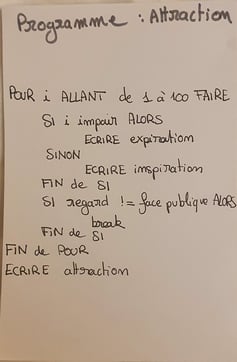 Programme : Attraction
POUR i ALLANT de 1 à 100 FAIRE
SI i impair ALORS
ECRIRE expiration
SINON
ECRIRE inspiration
FIN de SI
SI regard != face publique ALORS
break
FIN de SI
FIN de POUR
ECRIRE attraction